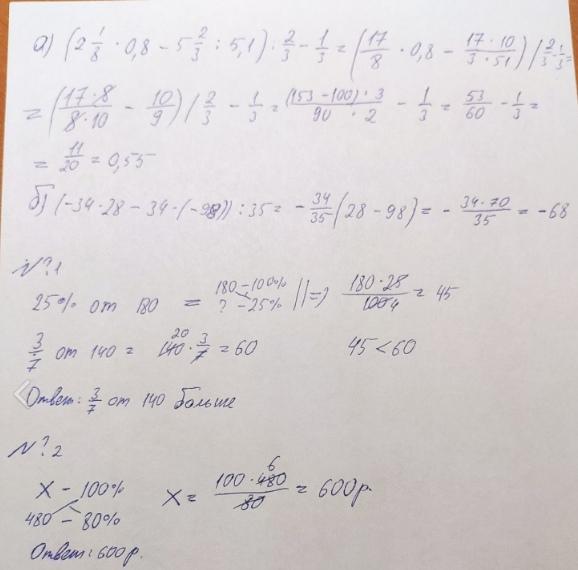 а) (2 1/8 · 0,8 − 5 2/3 : 5,1) : 2/3 − 1/3 = (17/8 · 0,8 − 17·10/3·51) / 2/3 − 1/3 =
= (17·8/8·10 − 10/9) / 2/3 − 1/3 = (153−100)·3/90·2 − 1/3 = 53/60 − 1/3 =
= 11/20 = 0,55
б) (−34·28 − 34·(−98)) : 35 = − 34/35 (28 − 98) = − 34·70/35 = −68
№1
25% от 180 = 180 − 100% ? − 25% || => 180·25/100 4 = 45
3/7 от 140 = 20 140 · 3/7 = 60 45 < 60
Ответ: 3/7 от 140 больше
№2
X − 100%
480 − 80%
X = 100·480 6/80 = 600р.
Ответ: 600р.